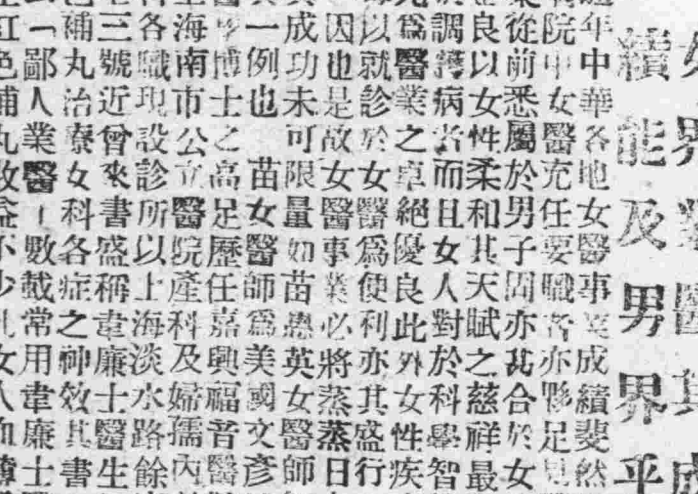 女界對醫其
績能及男界乎
年中華各地女醫事業成績斐然
院中女醫充任要職者亦夥足見
從前悉屬於男子間亦甚合於女
良以女性柔和其天賦之慈祥最
調護病者而且女人對於科學智
為醫業之卓絕優良此外女性疾
以就診於女醫為便利亦其盛行
因也是故女醫事業必將蒸蒸日
成功未可限量如苗懋英女醫師
一例也 苗女醫師為美國文彥
博士之高足歷任嘉興福音醫
海南市公立醫院產科及婦孺內
各職現設診所以上海淡水路餘
三號近曾來書盛稱韋廉士醫生
補丸治療女科各症之神效其書
「鄙人業醫—數載常用韋廉士
紅色補丸收益不少凡女人血薄